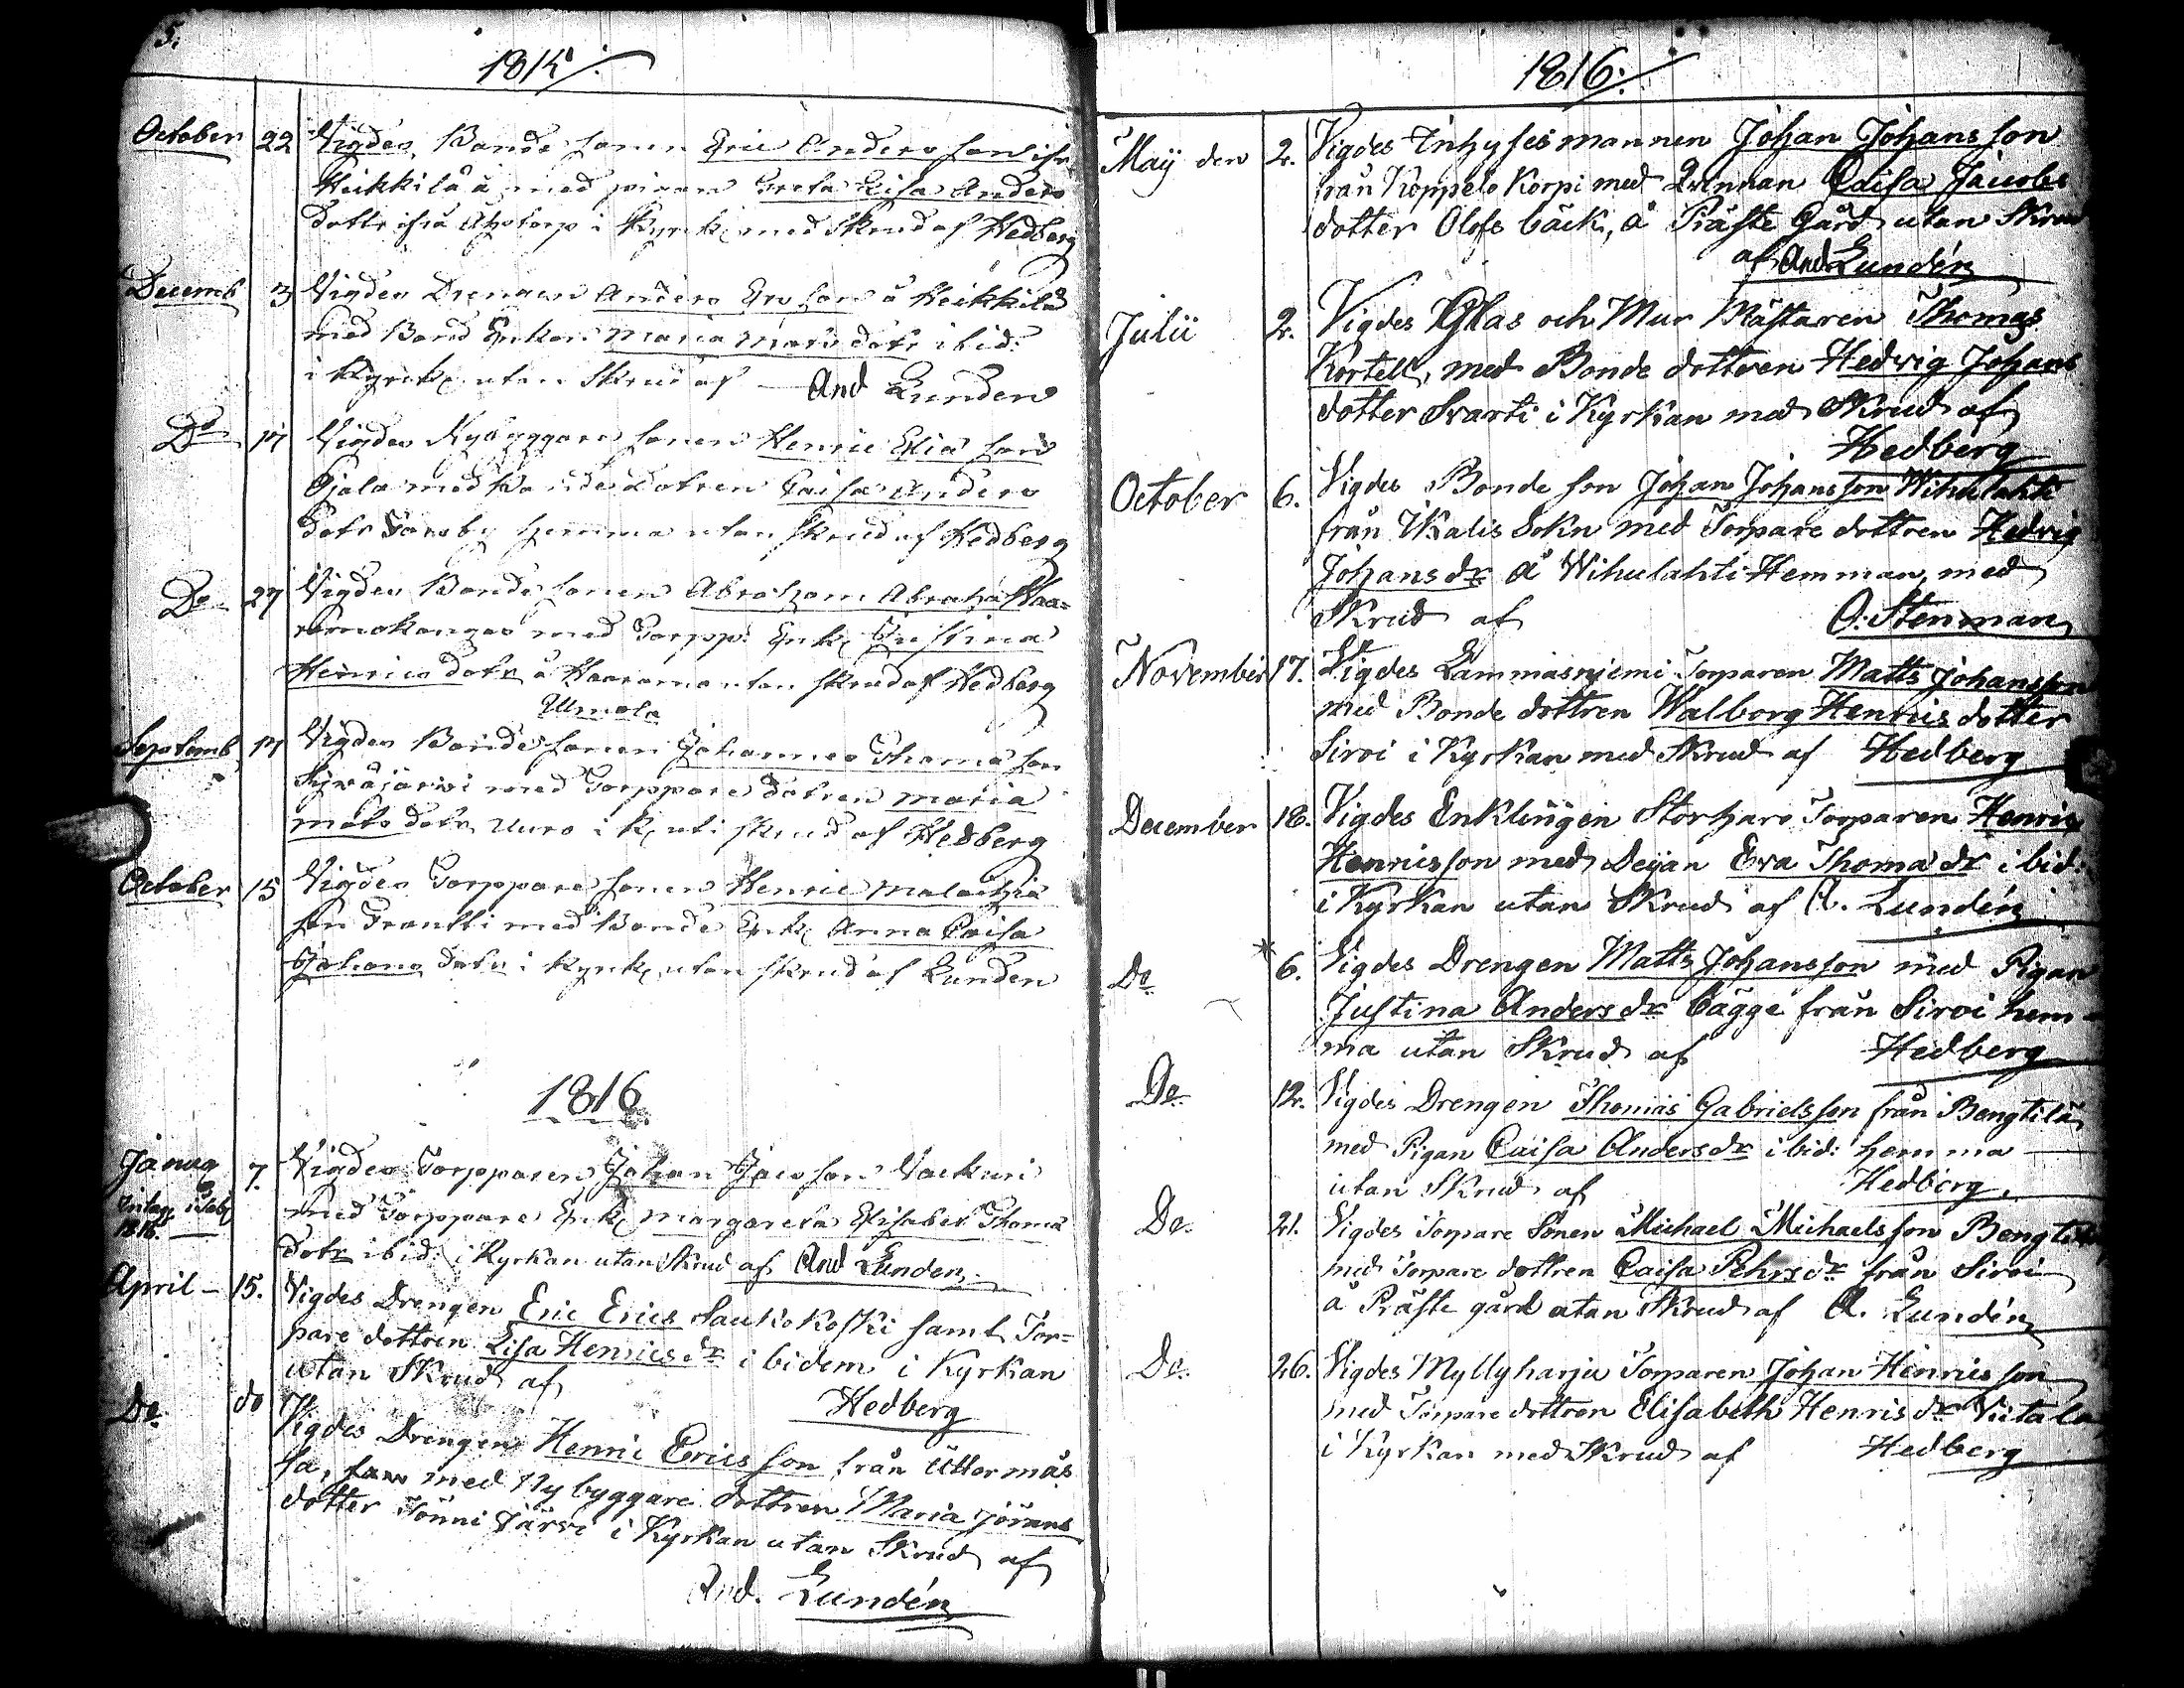 5.
1815
October 22 Vigdes Bonde sonen Eric Anders son ifr
Heikkilä å med pigan Greta Lisa Anders
dotte ifrå Åhotorp i Kyrk. med Skrud af Hedberg
Decemb 3 Vigdes Drengen Anders Ers son å Heikkilä
med Bond Enkan Maria Mats dotr ibid:
i Kyrck. utan Skrud af And Lunden
Do 17 Vigdes Nybyggare sonen Henric Elia son
med Bonde Dotren Caisa Anders
dotr hemma utan skrud af Hedberg
Do 27 Vigdes Bonde sonen Abraham Abraha
med Torpp: Enk. Justina
Henrics dotr å utan skrud af Hedberg
Septemb 17 Vigdes Bonde sonen Johannes Thoma son
Syväjärvi med Torppare dotren Maria
Mats dotr i K. skrud af Hedberg
October 15 Vigdes Torppare sonen Henric Malachia
son Frantti med Bonde Enk. Anna Caisa
Johans dotr i Kyrk. utan skrud af Lunden
1816
Janua 7. Vigdes Torpparen Johan Jacs son
1816. med Torppare Enk. Margareta Elisabet Thoma
dotr ibid: i Kyrkan utan Skrud af And Lunden
April – 15. Vigdes Drengen Eric Erics Saukokoski samt Tor=
pare dottren Lisa Henrics dr ibidem i Kyrkan
utan Skrud af
Hedberg
Do do Vigdes Drengen Henric Erics son från Uttermås
sa, med Nybyggare dottren Maria Jörans
dotter Jönni Järvi i Kyrkan utan Skrud af
And. Lundén
1816
Maÿ den 2. Vigdes Inhyses mannen Johan Johans son
från Koppelo Korpi med Qvinnan Caisa Jacobs
dotter Olofs bäck, å Präste Gård utan Skrud
af And Lundén
Julii 2. Vigdes Glas och Mur Mästaren Thomas
Kortell, med Bonde dottren Hedvig Johans
dotter Svarti i Kyrkan med Skrud af
Hedberg
October 6. Vigdes Bonde son Johan Johans son Wihulahti
från Ikalis Sokn med Torpare dottren Hedvig
Johans dr å Wihulahti Hemman, med
Skrud af O. Stenman
November 17. Vigdes Lammasniemi Torparen Matts Johansson
med Bonde dottren Walborg Henrics dotter
Siroi i Kyrkan med Skrud af Hedberg
December 18. Vigdes Enklingen Storharo Torparen Henric
Henricsson med Deÿan Eva Thoma dr ibid:
i Kyrkan utan Skrud af A. Lundén
Do * 6. Vigdes Drengen Matts Johansson med Pigan
Justina Anders dr bägge från Siroi hem-
ma utan Skrud af Hedberg
Do 12. Vigdes Drengen Thomas Gabrielsson från Bengtilä
med Pigan Caisa Anders dr ibid: hemma
utan Skrud af Hedberg
Do 21. Vigdes Torpare Sonen Michael Michaelsson Bengtilä
med Torpare dottren Caisa Pehrs dr från Siroi
å Präste gård utan Skrud af A. Lundén
Do 26. Vigdes Myllyharju Torparen Johan Henrics son
med Torpare dottren Elisabeth Henrics dr Vitala
i Kyrkan med Skrud af Hedberg